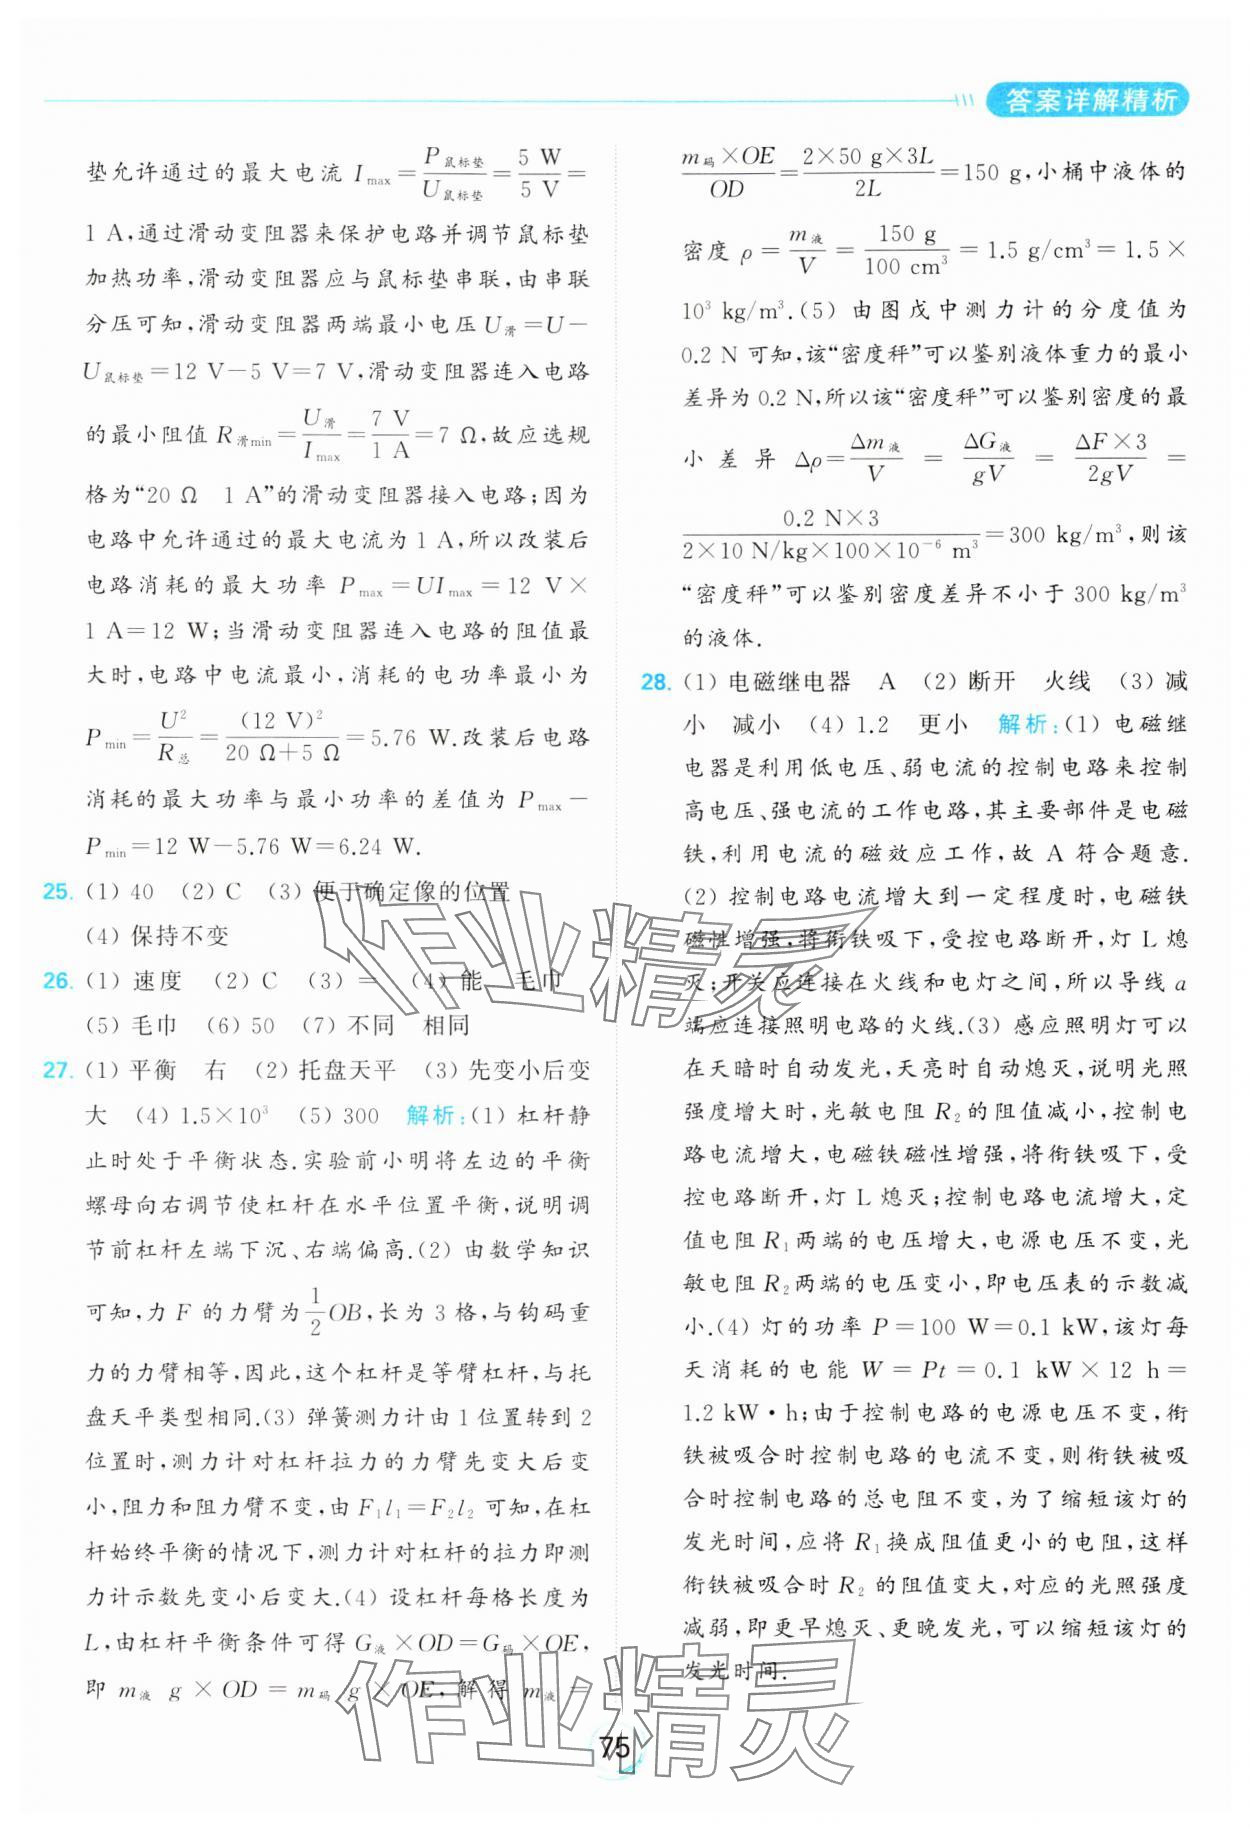 答案详解精析
垫允许通过的最大电流 I max = P鼠标垫/U鼠标垫 = 5 W/5 V =
1 A,通过滑动变阻器来保护电路并调节鼠标垫
加热功率,滑动变阻器应与鼠标垫串联,由串联
分压可知,滑动变阻器两端最小电压 U滑=U−
U鼠标垫=12 V−5 V=7 V,滑动变阻器连入电路
的最小阻值 R滑min = U滑/I max = 7 V/1 A = 7 Ω,故应选规
格为“20 Ω  1 A”的滑动变阻器接入电路;因为
电路中允许通过的最大电流为 1 A,所以改装后
电路消耗的最大功率 P max = UI max = 12 V ×
1 A=12 W;当滑动变阻器连入电路的阻值最
大时,电路中电流最小,消耗的电功率最小为
P min = U²/R总 = (12 V)²/(20 Ω+5 Ω) = 5.76 W.改装后电路
消耗的最大功率与最小功率的差值为 P max −
P min =12 W−5.76 W=6.24 W.
25. (1) 40  (2) C  (3) 便于确定像的位置
(4) 保持不变
26. (1) 速度  (2) C  (3) =  (4) 能  毛巾
(5) 毛巾  (6) 50  (7) 不同  相同
27. (1) 平衡  右  (2) 托盘天平  (3) 先变小后变
大  (4) 1.5×10³  (5) 300  解析:(1) 杠杆静
止时处于平衡状态.实验前小明将左边的平衡
螺母向右调节使杠杆在水平位置平衡,说明调
节前杠杆左端下沉、右端偏高.(2) 由数学知识
可知,力 F 的力臂为 1/2 OB,长为 3 格,与钩码重
力的力臂相等,因此,这个杠杆是等臂杠杆,与托
盘天平类型相同.(3) 弹簧测力计由 1 位置转到 2
位置时,测力计对杠杆拉力的力臂先变大后变
小,阻力和阻力臂不变,由 F₁l₁=F₂l₂ 可知,在杠
杆始终平衡的情况下,测力计对杠杆的拉力即测
力计示数先变小后变大.(4) 设杠杆每格长度为
L,由杠杆平衡条件可得 G液×OD=G码×OE,
即 m液 g × OD = m码 g × OE,解得 m液 =
m码×OE/OD = 2×50 g×3L/2L = 150 g,小桶中液体的
密度 ρ = m液/V = 150 g/100 cm³ = 1.5 g/cm³ = 1.5 ×
10³ kg/m³.(5) 由图戊中测力计的分度值为
0.2 N 可知,该“密度秤”可以鉴别液体重力的最小
差异为 0.2 N,所以该“密度秤”可以鉴别密度的最
小差异 Δρ = Δm液/V = ΔG液/gV = ΔF×3/2gV =
0.2 N×3/(2×10 N/kg×100×10⁻⁶ m³) = 300 kg/m³,则该
“密度秤”可以鉴别密度差异不小于 300 kg/m³
的液体.
28. (1) 电磁继电器  A  (2) 断开  火线  (3) 减
小  减小  (4) 1.2  更小  解析:(1) 电磁继
电器是利用低电压、弱电流的控制电路来控制
高电压、强电流的工作电路,其主要部件是电磁
铁,利用电流的磁效应工作,故 A 符合题意.
(2) 控制电路电流增大到一定程度时,电磁铁
磁性增强,将衔铁吸下,受控电路断开,灯 L 熄
灭;开关应连接在火线和电灯之间,所以导线 a
端应连接照明电路的火线.(3) 感应照明灯可以
在天暗时自动发光,天亮时自动熄灭,说明光照
强度增大时,光敏电阻 R₂ 的阻值减小,控制电
路电流增大,电磁铁磁性增强,将衔铁吸下,受
控电路断开,灯 L 熄灭;控制电路电流增大,定
值电阻 R₁ 两端的电压增大,电源电压不变,光
敏电阻 R₂ 两端的电压变小,即电压表的示数减
小.(4) 灯的功率 P=100 W=0.1 kW,该灯每
天消耗的电能 W = Pt = 0.1 kW × 12 h =
1.2 kW·h;由于控制电路的电源电压不变,衔
铁被吸合时控制电路的电流不变,则衔铁被吸
合时控制电路的总电阻不变,为了缩短该灯的
发光时间,应将 R₁ 换成阻值更小的电阻,这样
衔铁被吸合时 R₂ 的阻值变大,对应的光照强度
减弱,即更早熄灭、更晚发光,可以缩短该灯的
发光时间.
作业精灵
作业精灵
75